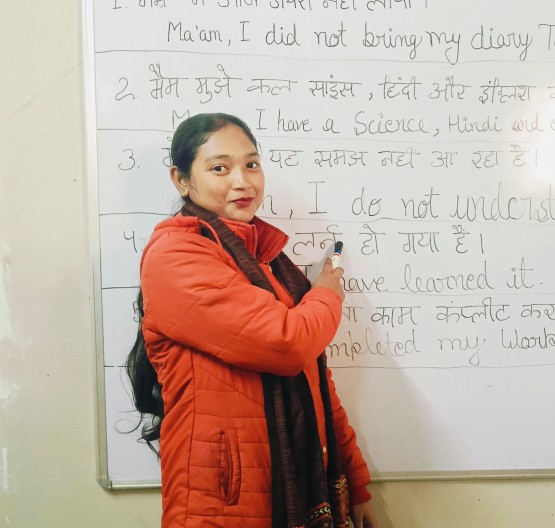 1. मैम मैं आज डायरी नहीं लायी।
Ma'am, I did not bring my diary
2. मैम मुझे कल साइंस, हिंदी और इंग्लिश
I have a Science, Hindi and
3. यह समझ नहीं आ रहा है।
, I do not underst
4. लर्न हो गया है।
have learned it.
काम कंप्लीट कर
mpleted my Work